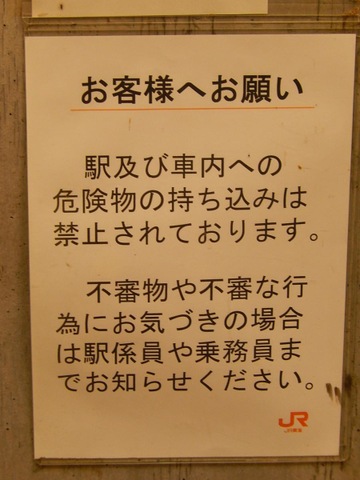 お客様へお願い
駅及び車内への
危険物の持ち込みは
禁止されております。
不審物や不審な行
為にお気づきの場合
は駅係員や乗務員ま
でお知らせください。
JR